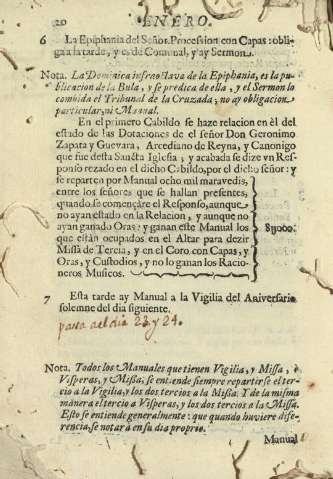 20 ENERO.
6 La Epiphania del Señor. Procession con Capas: obli-
ga a la tarde, y es de Comunal, y ay Sermon.
Nota. La Dominica infraoctava de la Epiphania, es la pu-
blicacion de la Bula, y se predica de ella, y el Sermon lo
combida el Tribunal de la Cruzada; no ay obligacion
particular, ni Manual.
En el primero Cabildo se haze relacion en èl del
estado de las Dotaciones de el señor Don Geronimo
Zapata y Guevara, Arcediano de Reyna, y Canonigo
que fue desta Sancta Iglesia, y acabada se dize vn Res-
ponso rezado en el dicho Cabildo, por el dicho señor: y
se reparten por Manual ocho mil maravedis,
entre los señores que se hallan presentes,
quando se començare el Responso, aunque
no ayan estado en la Relacion, y aunque no
ayan ganado Oras; y ganan este Manual los 8U000.
que estàn ocupados en el Altar para dezir
Missa de Tercia, y en el Coro con Capas, y
Oras, y Custodios, y no lo ganan los Racio-
neros Musicos.
7 Esta tarde ay Manual a la Vigilia del Aniversario
solemne del dia siguiente.
pasa al dia 23 y 24.
Nota. Todos los Manuales que tienen Vigilia, y Missa, ò
Visperas, y Missa, se entiende siempre repartirse el ter-
cio a la Vigilia, y los dos tercios a la Missa: Y de la misma
manera el tercio a Visperas, y los dos tercios a la Missa.
Esto se entiende generalmente: que quando huviere di-
ferencia, se notarà en su dia proprio.
Manual